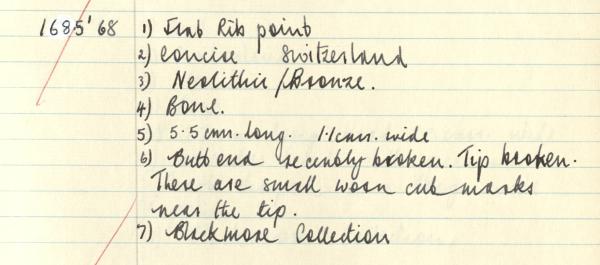 1685'68 1) Flat Rib point
2) Concise Switzerland
3) Neolithic/Bronze.
4) Bone.
5) 5.5 cms. long. 1.1 cms. wide
6) Butt end recently broken. Tip broken.
There are small worn cut marks
near the tip.
7) Blackmore Collection